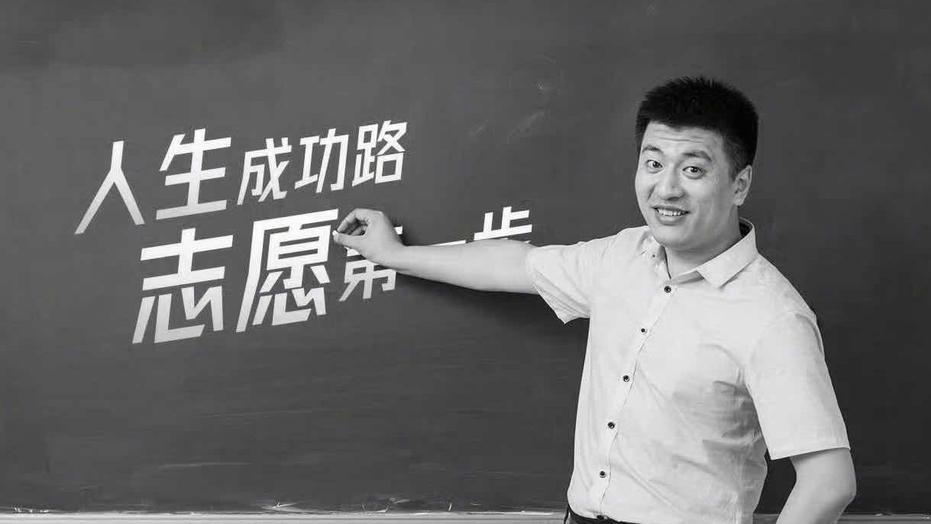 人生成功路
志愿第一步